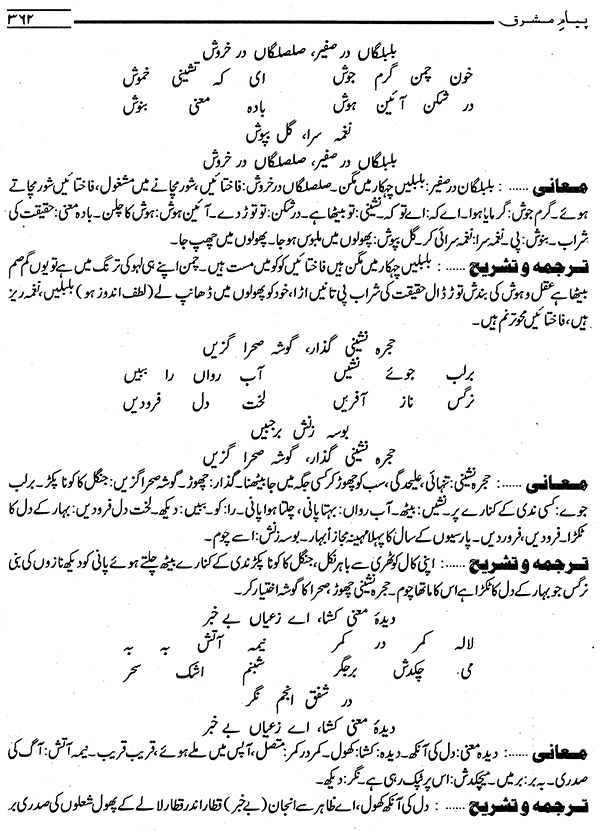 پیامِ مشرق ۳۶۲
بلبلگاں در صفیر، صلصلگاں در خروش
خون چمن گرم جوش ای کہ نشینی خموش
در شکن آئین ہوش بادہ معنی بنوش
نغمہ سرا، گل بپوش
بلبلگاں در صفیر، صلصلگاں در خروش
معانی ...... : بلبلگان در صفیر: بلبلیں چہکار میں مگن۔ صلصلگاں در خروش: فاختائیں شور مچانے میں مشغول، فاختائیں شور مچاتے
ہوئے۔ گرم جوش: گرمایا ہوا۔ اے کہ: اے تو کہ۔ نشینی: تو بیٹھا ہے۔ در شکن: تو توڑ دے۔ آئین ہوش: ہوش کا چلن۔ بادہ معنی: حقیقت کی
شراب۔ بنوش: پی۔ نغمہ سرا: نغمہ سرائی کر۔ گل بپوش: پھولوں میں ملبوس ہو جا۔ پھولوں میں چھپ جا۔
ترجمہ و تشریح ...... : بلبلیں چہکار میں مگن ہیں فاختائیں کوکو میں مست ہیں۔ چمن اپنے ہی لہو کی ترنگ میں ہے تو یوں گم صم
بیٹھا ہے عقل و ہوش کی بندش توڑ ڈال حقیقت کی شراب پی تانیں اڑا، خود کو پھولوں میں ڈھانپ لے (لطف اندوز ہو) بلبلیں، نغمہ ریز
ہیں، فاختائیں محو ترنم ہیں۔
حجرہ نشینی گذار، گوشہ صحرا گزیں
برلب جوئے نشیں آب رواں را ببیں
نرگس ناز آفریں لخت دل فرودیں
بوسہ زنش برجبیں
حجرہ نشینی گذار، گوشہ صحرا گزیں
معانی ...... : حجرہ نشینی: تنہائی، علیحدگی، سب کو چھوڑ کر کسی جگہ میں جا بیٹھنا۔ گذار: چھوڑ۔ گوشہ صحرا گزیں: جنگل کا کونا پکڑ۔ برلب
جوے: کسی ندی کے کنارے پر۔ نشیں: بیٹھ۔ آب رواں: بہتا پانی، چلتا ہوا پانی۔ را: کو۔ ببیں: دیکھ۔ لخت دل فرودیں: بہار کے دل کا
ٹکڑا۔ فرودیں، فروردیں۔ پارسیوں کے سال کا پہلا مہینہ مجازاً بہار۔ بوسہ زنش: اسے چوم۔
ترجمہ و تشریح ...... : اپنی کال کوٹھری سے باہر نکل، جنگل کا کونا پکڑ ندی کے کنارے بیٹھ چلتے ہوئے پانی کو دیکھ نازوں کی بنی
نرگس جو بہار کے دل کا ٹکڑا ہے اس کا ماتھا چوم۔ حجرہ نشینی چھوڑ، صحرا کا گوشہ اختیار کر۔
دیدۂ معنی کشا، اے زعیاں بے خبر
لالہ کمر در کمر نیمہ آتش بہ بر
می چکدش برجگر شبنم اشک سحر
در شفق انجم نگر
دیدۂ معنی کشا، اے زعیاں بے خبر
معانی ...... : دیدہ معنی: دل کی آنکھ۔ دیدہ: کشا: کھول۔ کمر در کمر: متصل، آپس میں ملے ہوئے، قریب قریب۔ نیمہ آتش: آگ کی
صدری۔ بہ بر: بر میں۔ میچکدش: اس پر ٹپک رہی ہے۔ نگر: دیکھ۔
ترجمہ و تشریح ...... : دل کی آنکھ کھول، اے ظاہر سے انجان (بے خبر) قطار اندر قطار لالے کے پھول شعلوں کی صدری بر